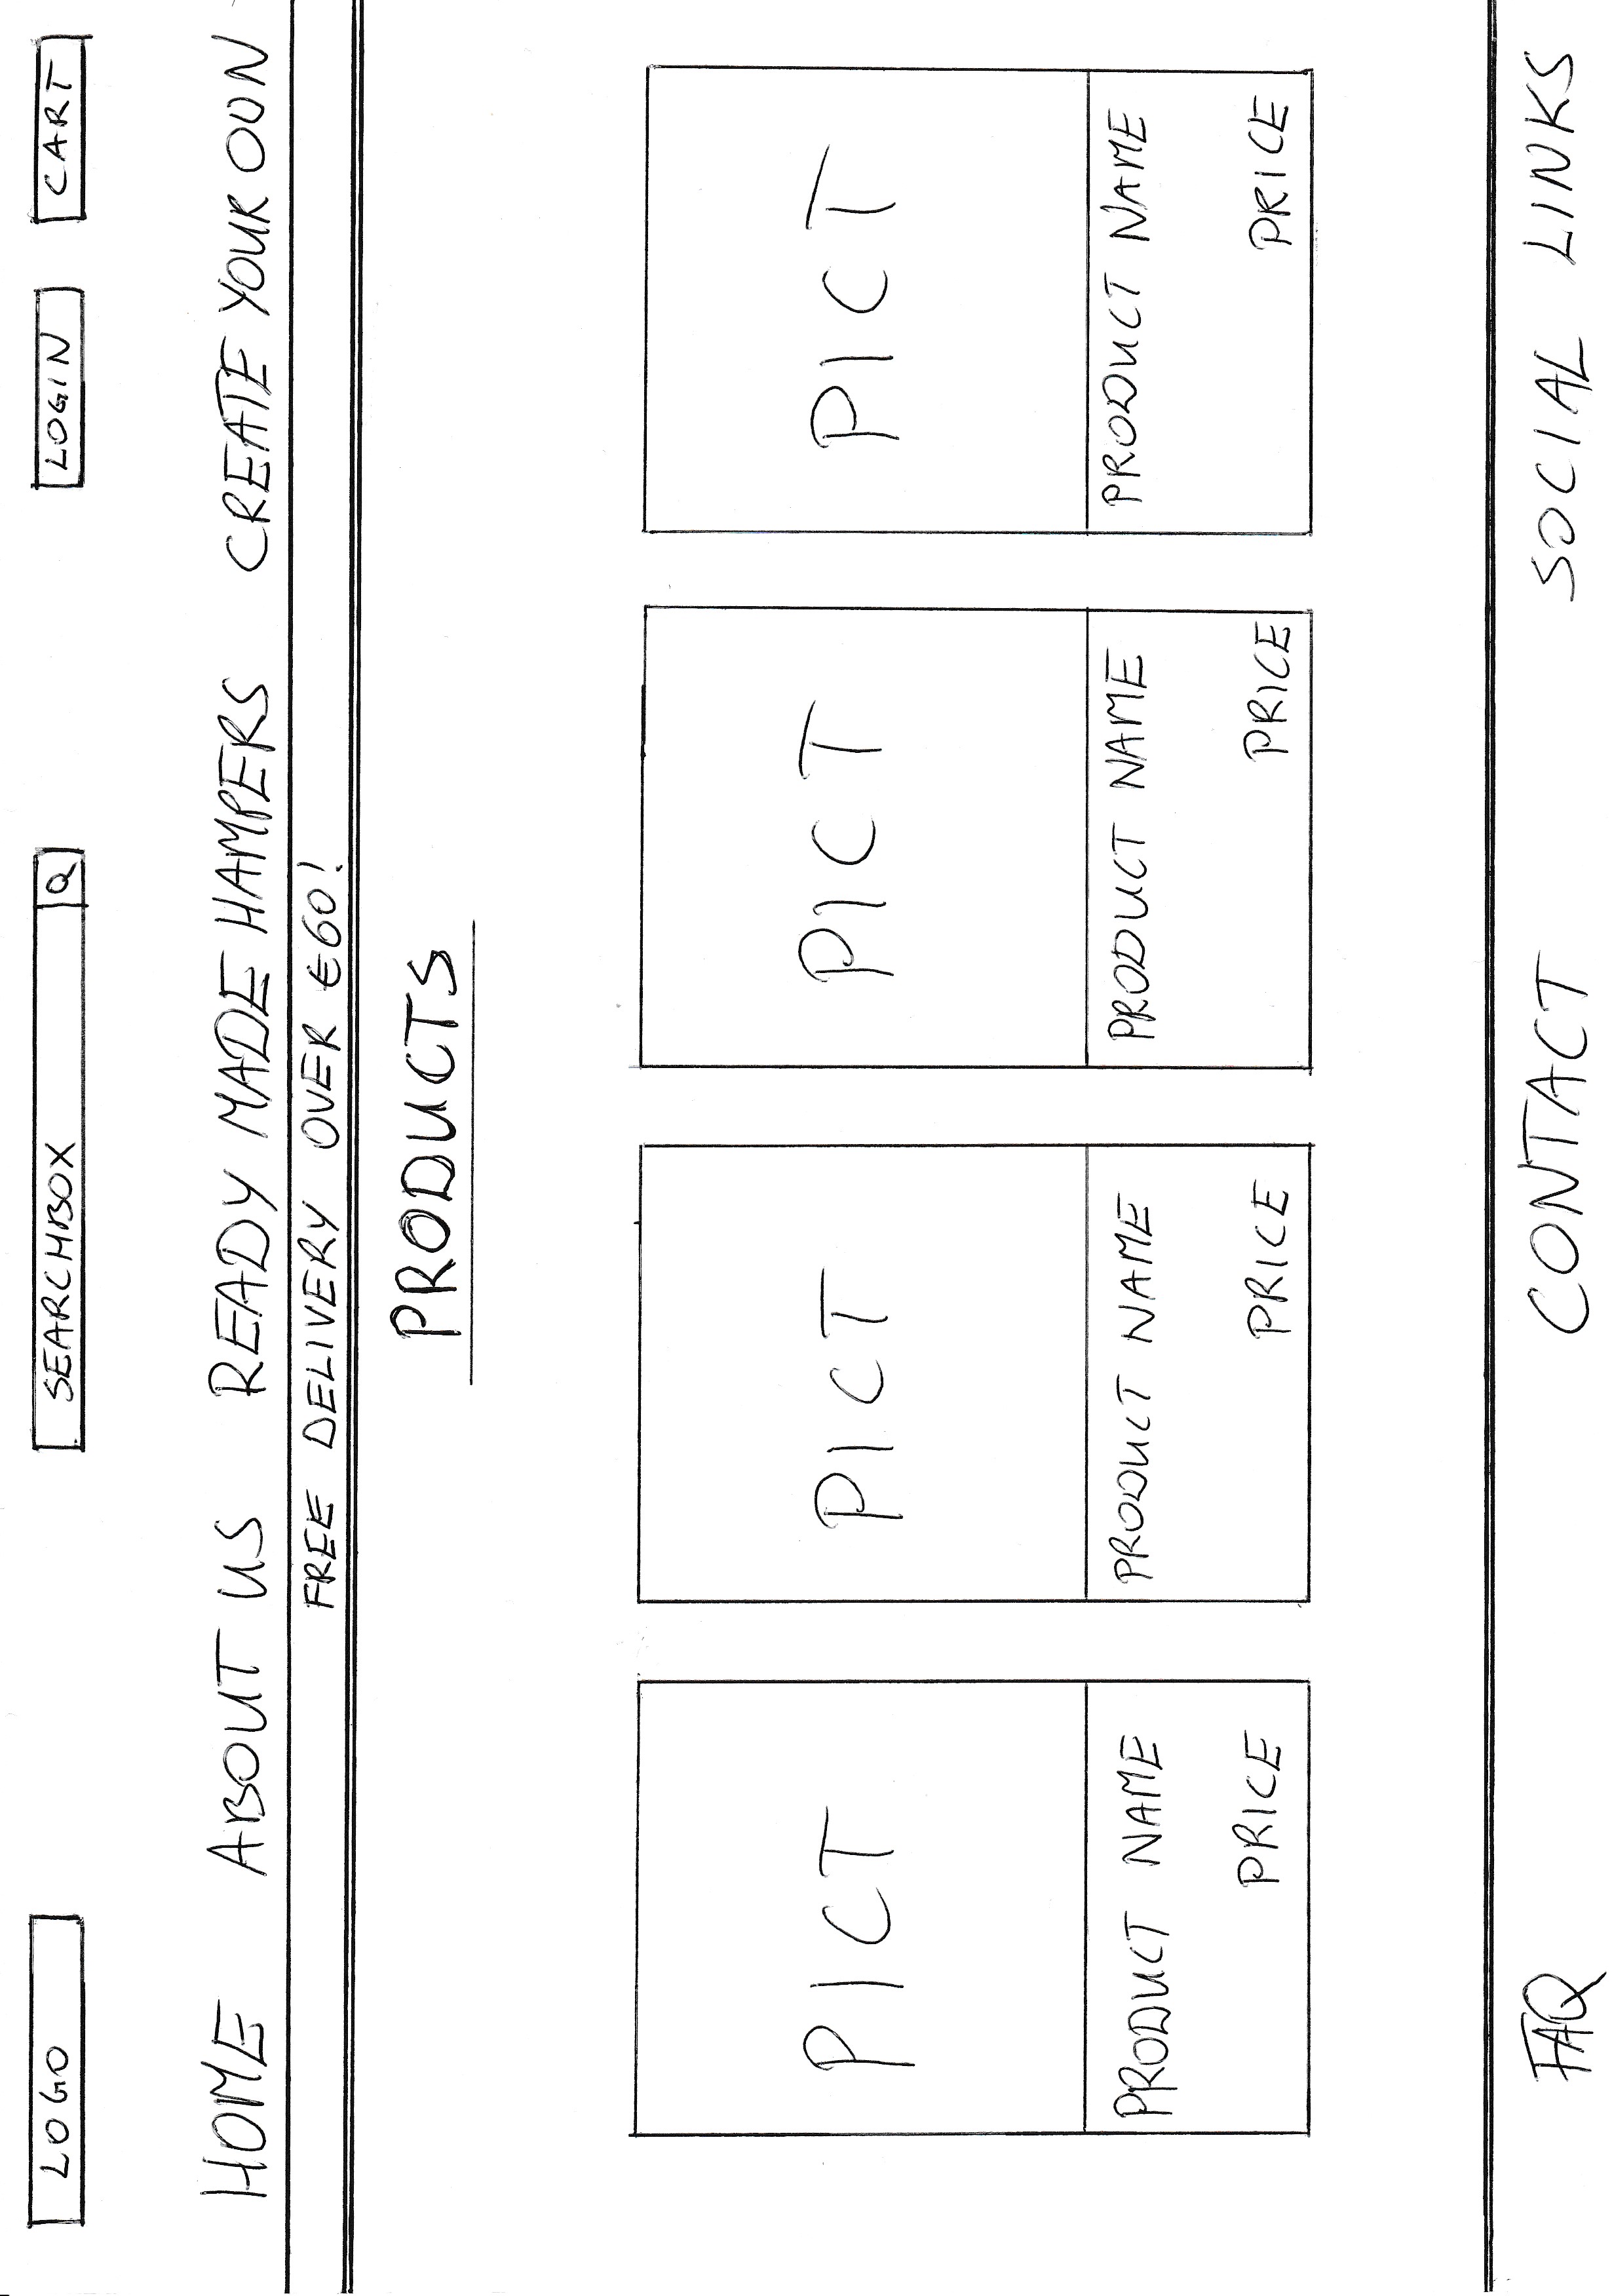 LOGO SEARCHBOX Q LOGIN CART
HOME ABOUT US READY MADE HAMPERS CREATE YOUR OUN
FREE DELIVERY OVER €60!
PRODUCTS
PICT PICT PICT PICT
PRODUCT NAME PRODUCT NAME PRODUCT NAME PRODUCT NAME
PRICE PRICE PRICE PRICE
FAQ CONTACT SOCIAL LINKS